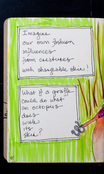 Imagine
our own fashion
influences
from creatures
with changeable skin!
What if a giraffe
could do what
an octopus
does
with
its
skin?